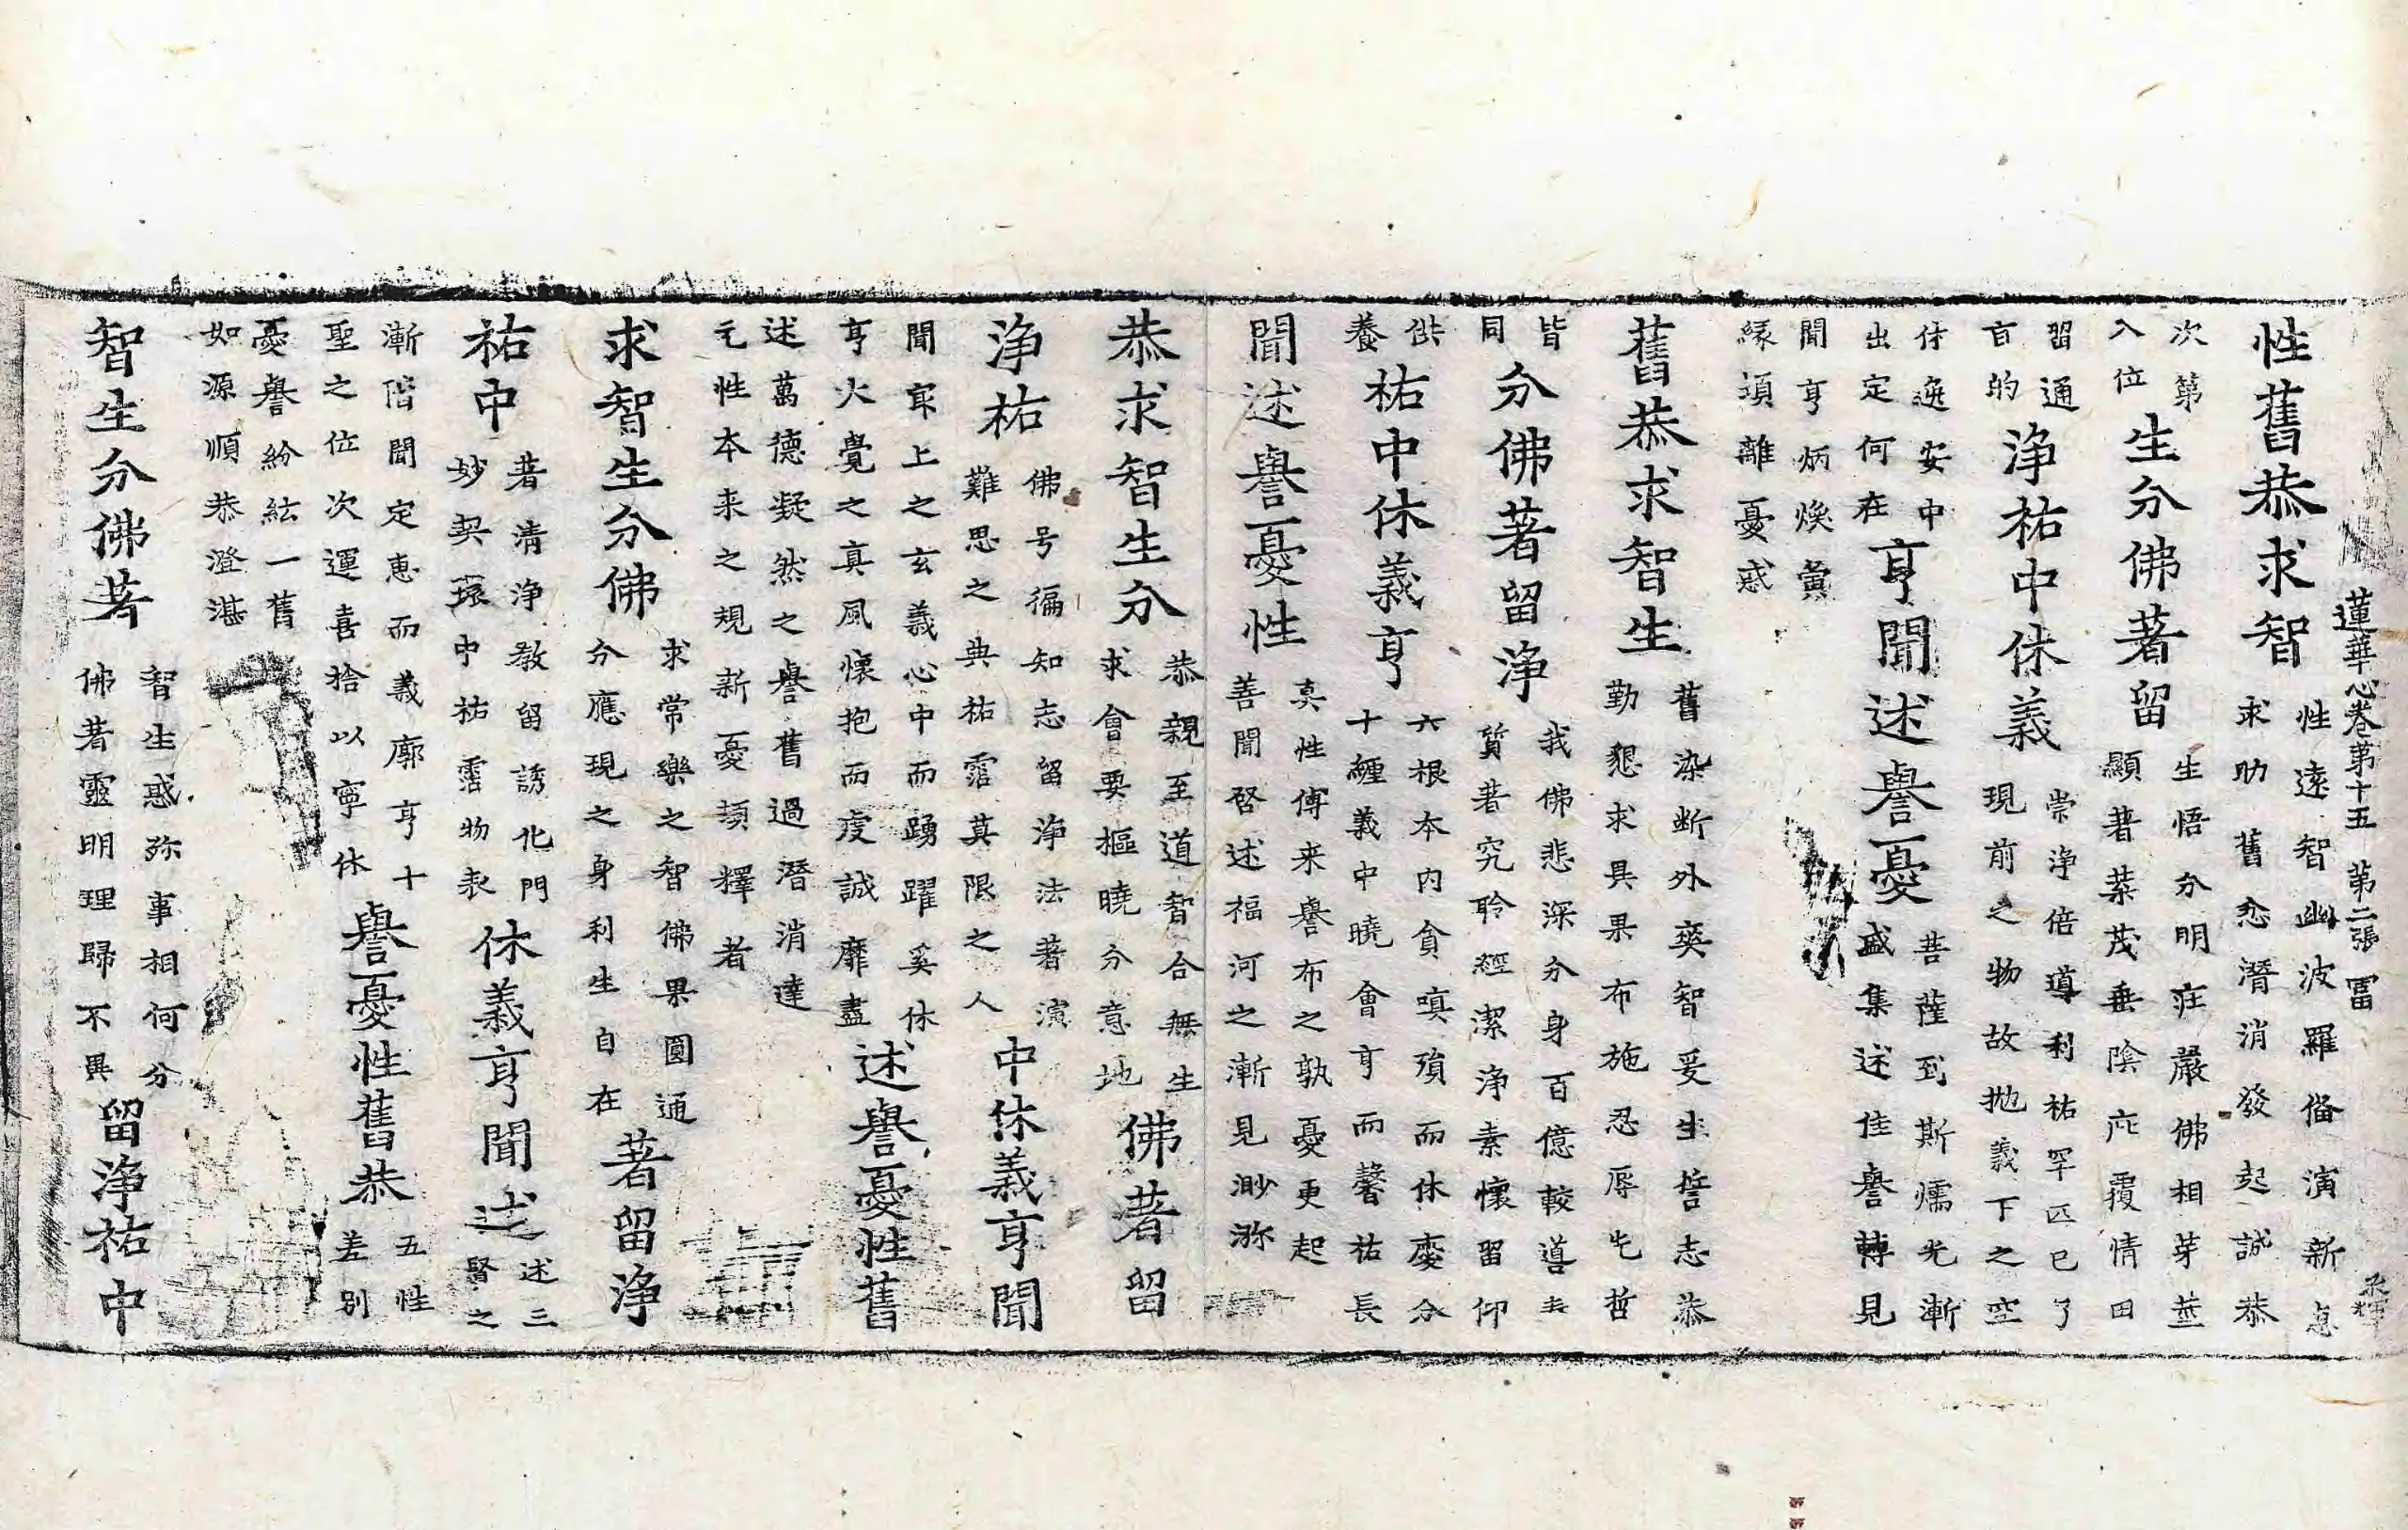 蓮華心巻第十五 第二張 畐
性舊恭求智 性遠智幽波羅俻演新
求助舊愆潛消發起誠恭
次第
入位 生分佛著留 生悟分明莊嚴佛相芽
顯著葉茂垂陰庇覆情田
習通
百的 淨祐中休義 崇淨倍導利祐罕匹已了
現前之物故抛義下之空
出定何在 安中 亨聞述譽憂 菩薩到斯漸
盛集述佳譽轉見
聞亨炳煥
緣項離憂惑
舊恭求智生 舊染断外智生誓志恭
勤懇求具果布施忍辱
皆
同 分佛著留淨 我佛悲深分身百億較噵
質著究聆經潔淨素懷留仰
供
養 祐中休義亨 六根本内貪嗔殞而休分
十纏義中曉會亨而馨祐長
聞述譽憂性 真性傳来譽布之孰憂更起
善聞啓述福河之漸見渺㳽
恭求智生分 恭親至道智合無生
求會要樞曉分意地 佛著留
淨祐 佛号徧知志留淨法著演
難思之典祐霑莫限之人 中休義亨聞
聞㝡上之玄義心中而踴躍奚休
亨火覺之真風懷抱而虔誠靡盡 述譽憂性舊
述萬德凝然之譽舊過潛消達
元性本来之規新憂頓釋者
求智生分佛 求常樂之智佛果圓通
分應現之身利生自在 著留淨
祐中 著清淨教留誘化門
妙契環中祐霑物表 休義亨聞述 述三
賢之
漸偕聞定恵而義廓亨十
聖之位次運喜捨以寧休 譽憂性舊恭 五性
差别
憂譽紛紜一舊
如源順恭澄湛
智生分佛著 智生惑弥事相何分
佛著靈明理歸不異 留淨祐中